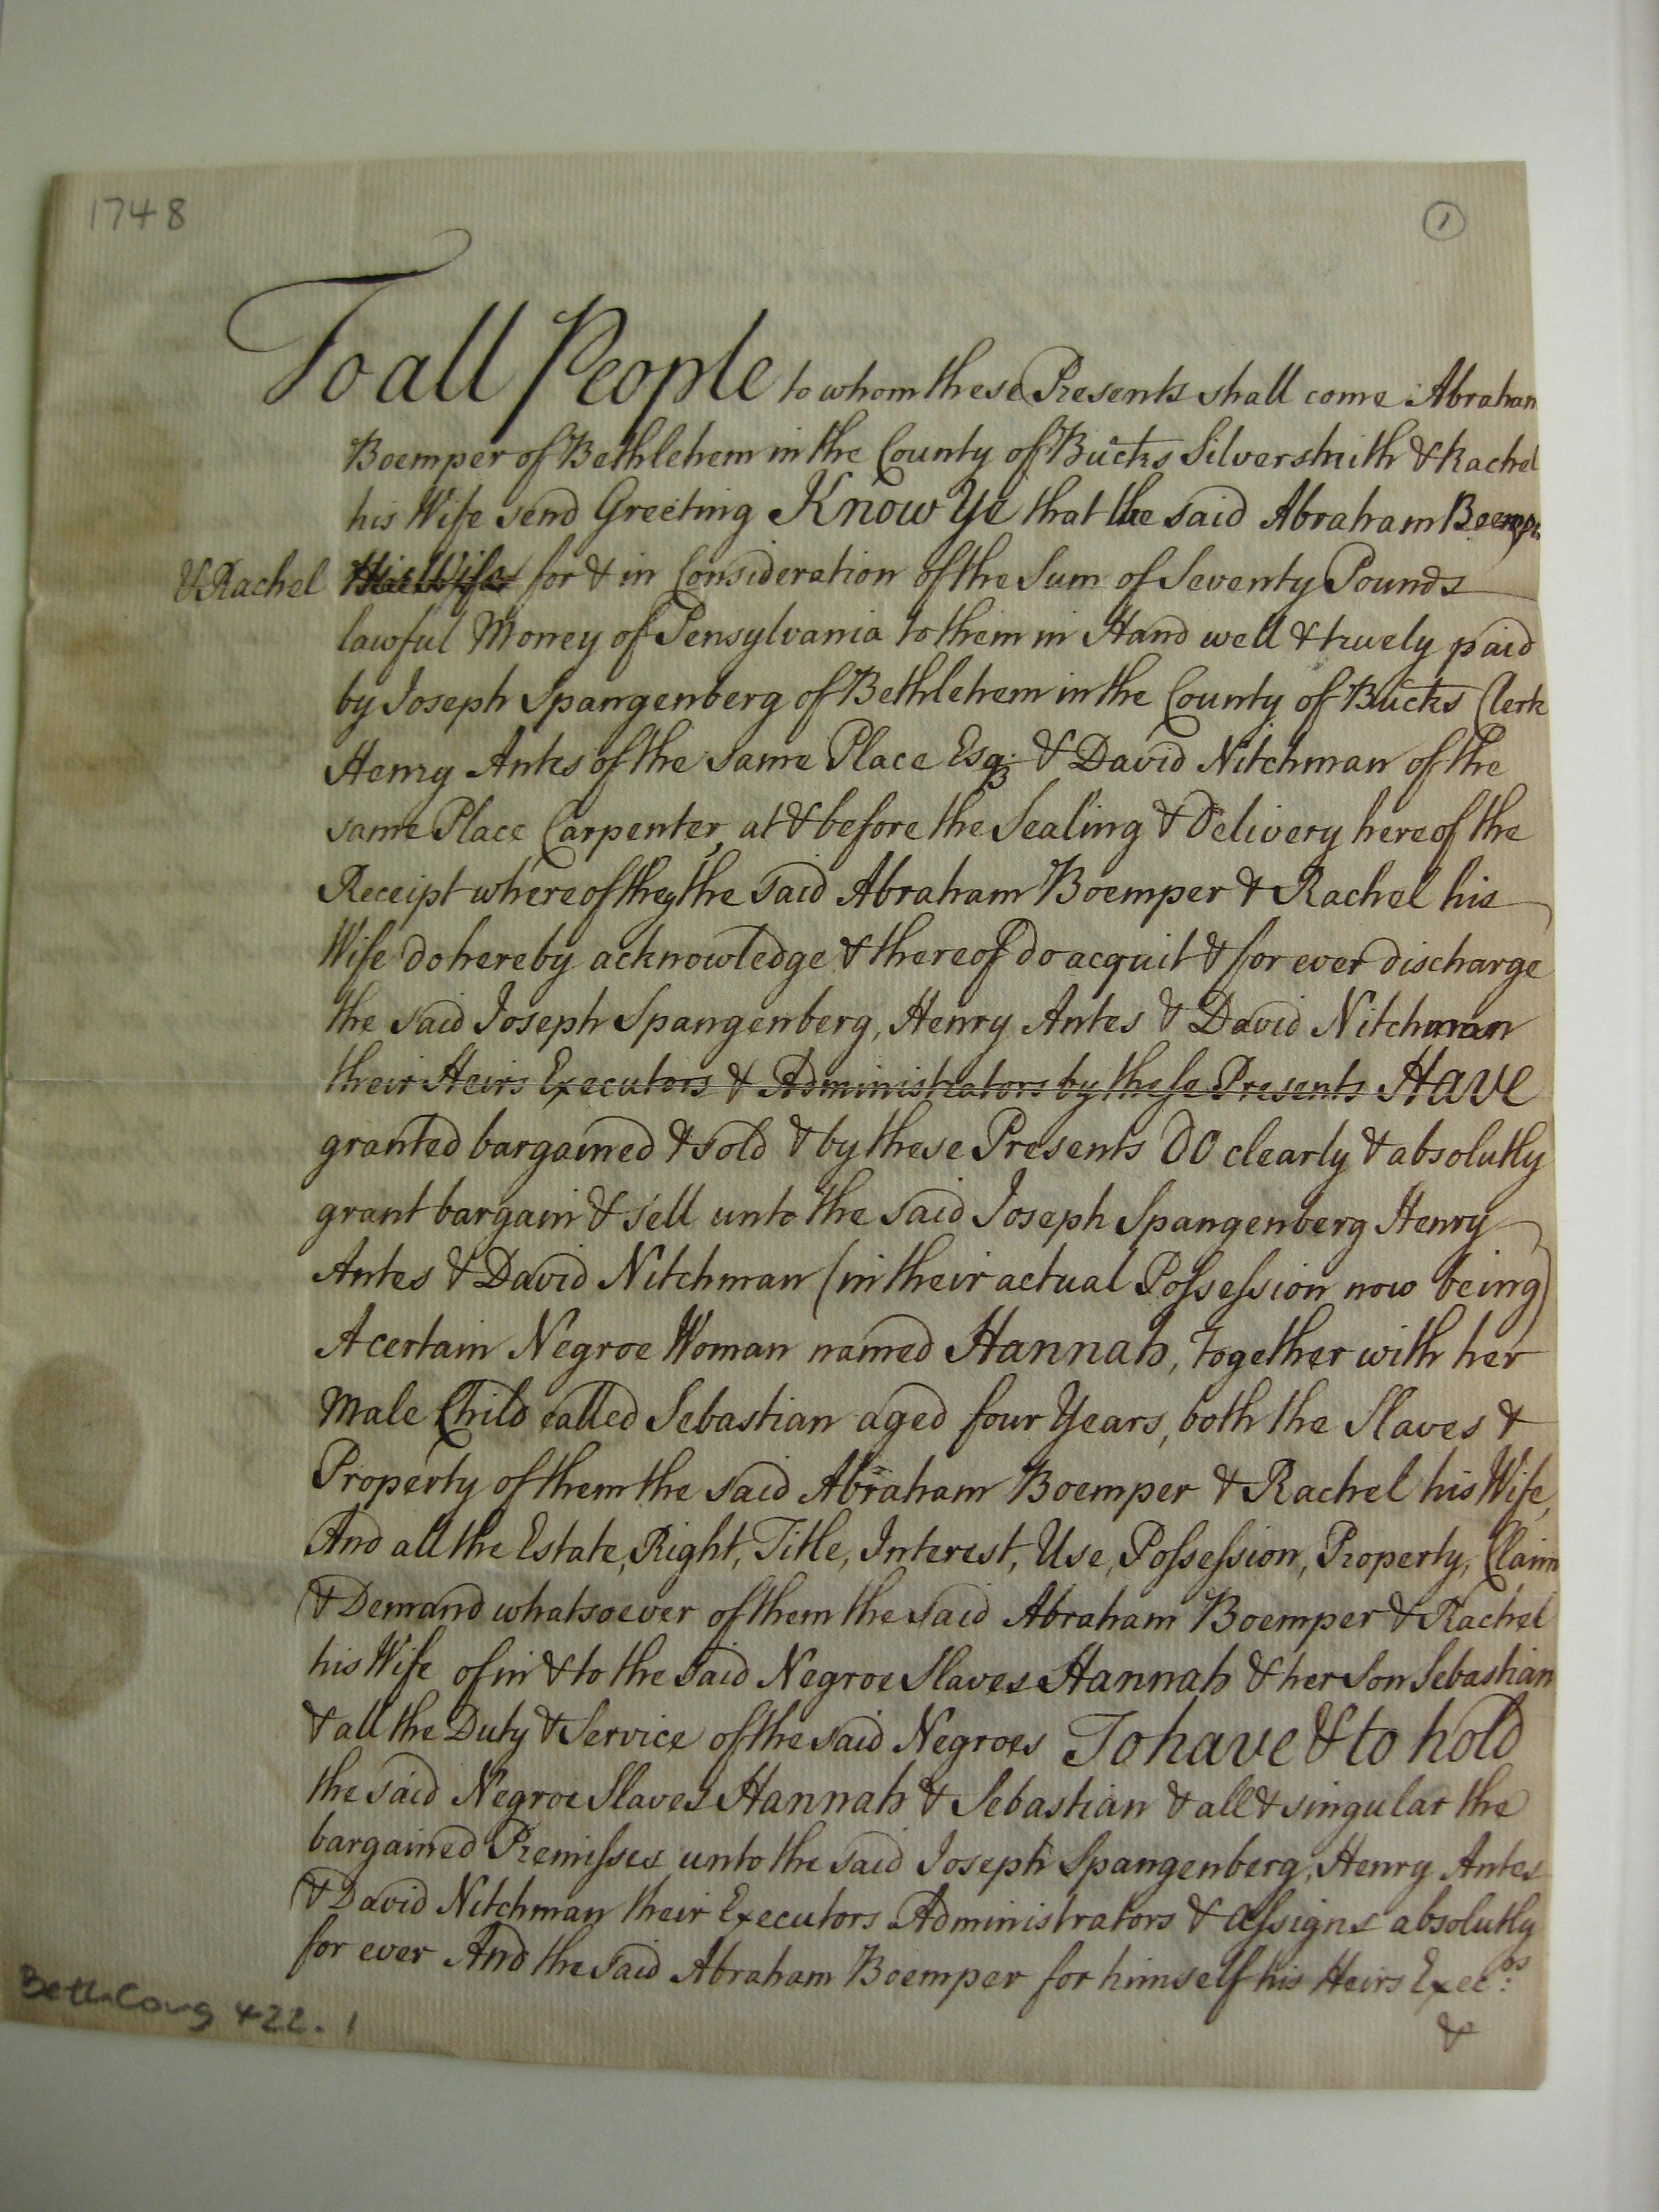 1748
1
To all People to whom these Presents shall come Abraham
Boemper of Bethlehem in the County of Bucks Silversmith & Rachel
his Wife send Greeting Know Ye that the said Abraham Boemper
& Rachel his Wife for & in Consideration of the Sum of Seventy Pounds
lawful Money of Pensylvania to them in Hand well & truely paid
by Joseph Spangenberg of Bethlehem in the County of Bucks Clerk
Henry Antes of the same Place Esqr. & David Nitchman of the
same Place Carpenter, at & before the Sealing & Delivery hereof the
Receipt whereof they the said Abraham Boemper & Rachel his
Wife do hereby acknowledge & thereof do acquit & for ever discharge
the said Joseph Spangenberg, Henry Antes & David Nitchman
their Heirs Executors & Administrators by these Presents Have
granted bargained & sold & by these Presents DO clearly & absolutly
grant bargain & sell unto the said Joseph Spangenberg Henry
Antes & David Nitchman (in their actual Possession now being)
A certain Negroe Woman named Hannah, together with her
Male Child called Sebastian aged four Years, both the Slaves &
Property of them the said Abraham Boemper & Rachel his Wife,
And all the Estate, Right, Title, Interest, Use, Possession, Property, Claim
& Demand whatsoever of them the said Abraham Boemper & Rachel
his Wife of in & to the said Negroe Slaves Hannah & her Son Sebastian
& all the Duty & Service of the said Negroes To have & to hold
the said Negroe Slaves Hannah & Sebastian & all & singular the
bargained Premisses unto the said Joseph Spangenberg, Henry Antes
& David Nitchman their Executors Administrators & assigns absolutly
for ever And the said Abraham Boemper for himself his Heirs Execrs:
&
BethCong 422.1